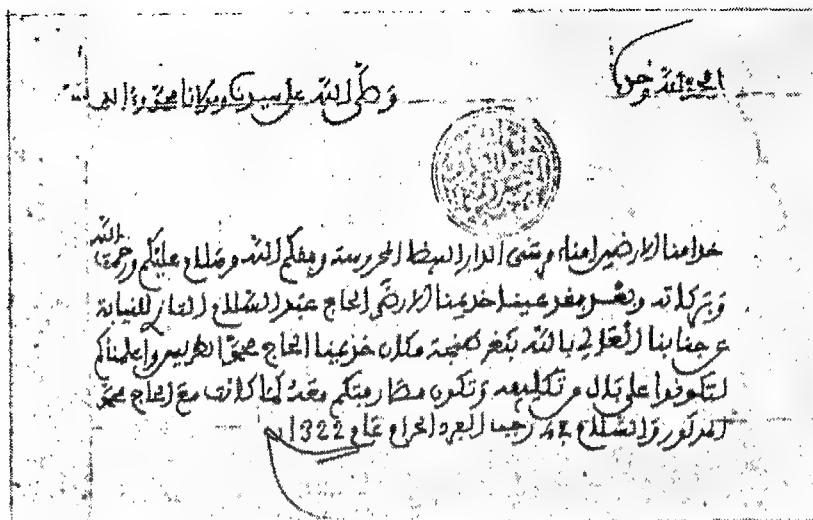 الحمد لله وحده
وصلى الله على سيدنا ومولانا محمد وآله
خدامنا الأرضين أمناء مرسى الدار البيضا المحروسة وفقكم الله وسلام عليكم ورحمت الله
وبركاته وبعد فقد عينا خديمنا الأرضى الحاج عبد السلام للنيابة
عن جنابنا العالي بالله بثغر طنجة مكان خديمنا الحاج محمد الطريس وأعلمناكم
لتكونوا على بال من تكليفه وتكون مضاربتكم معه كما كانت مع الحاج محمد
المذكور والسلام في رجب الفرد الحرام عام 1322